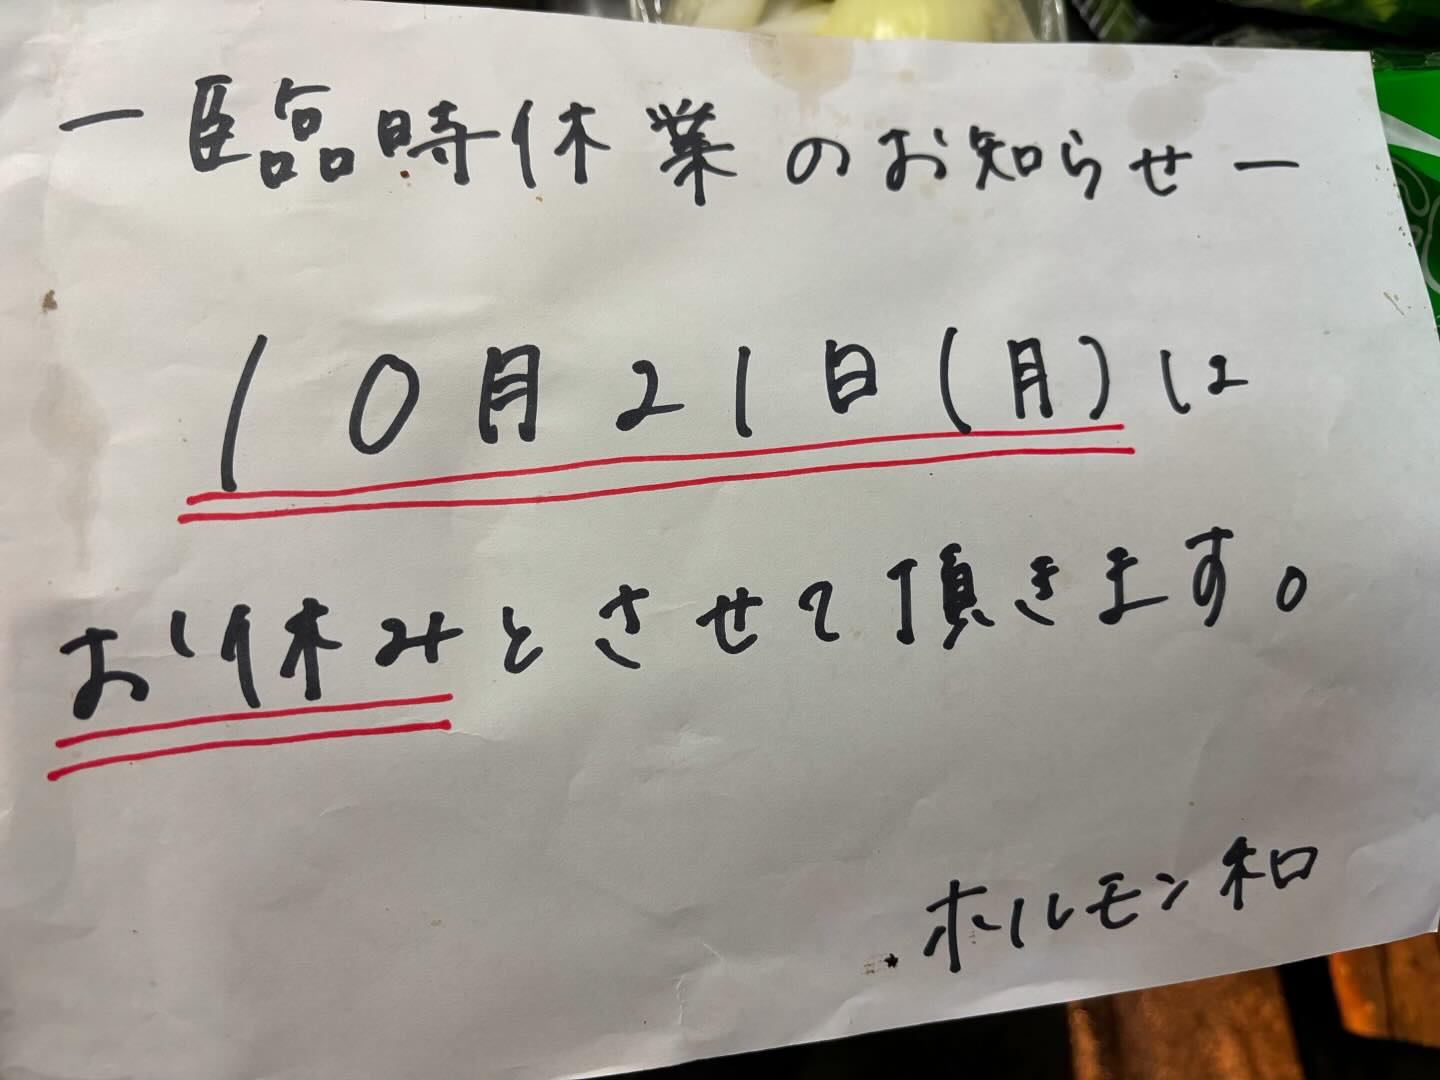 ー臨時休業のお知らせー
10月21日(月)は
お休みとさせて頂きます。
ホルモン和